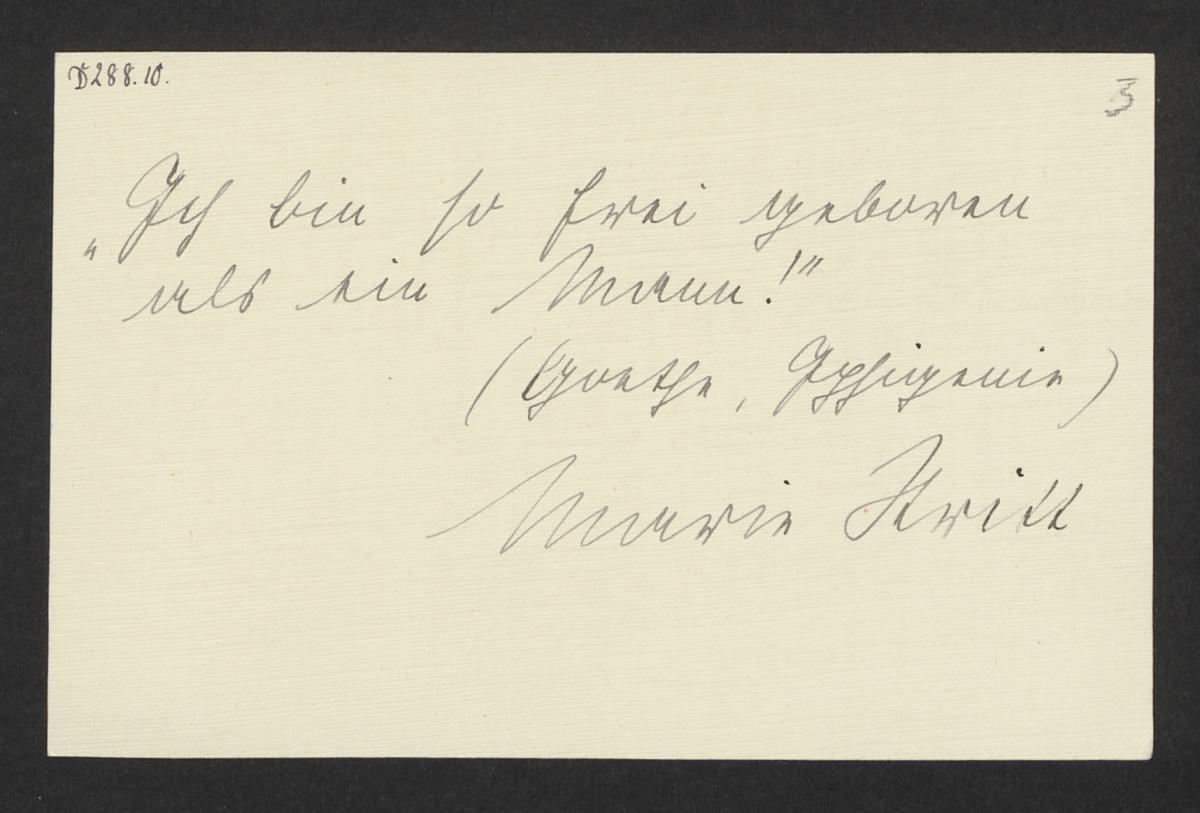 D288.10.
3
„Ich bin so frei geboren
als ein Mann!“
(Goethe, Iphigenie)
Marie Stritt